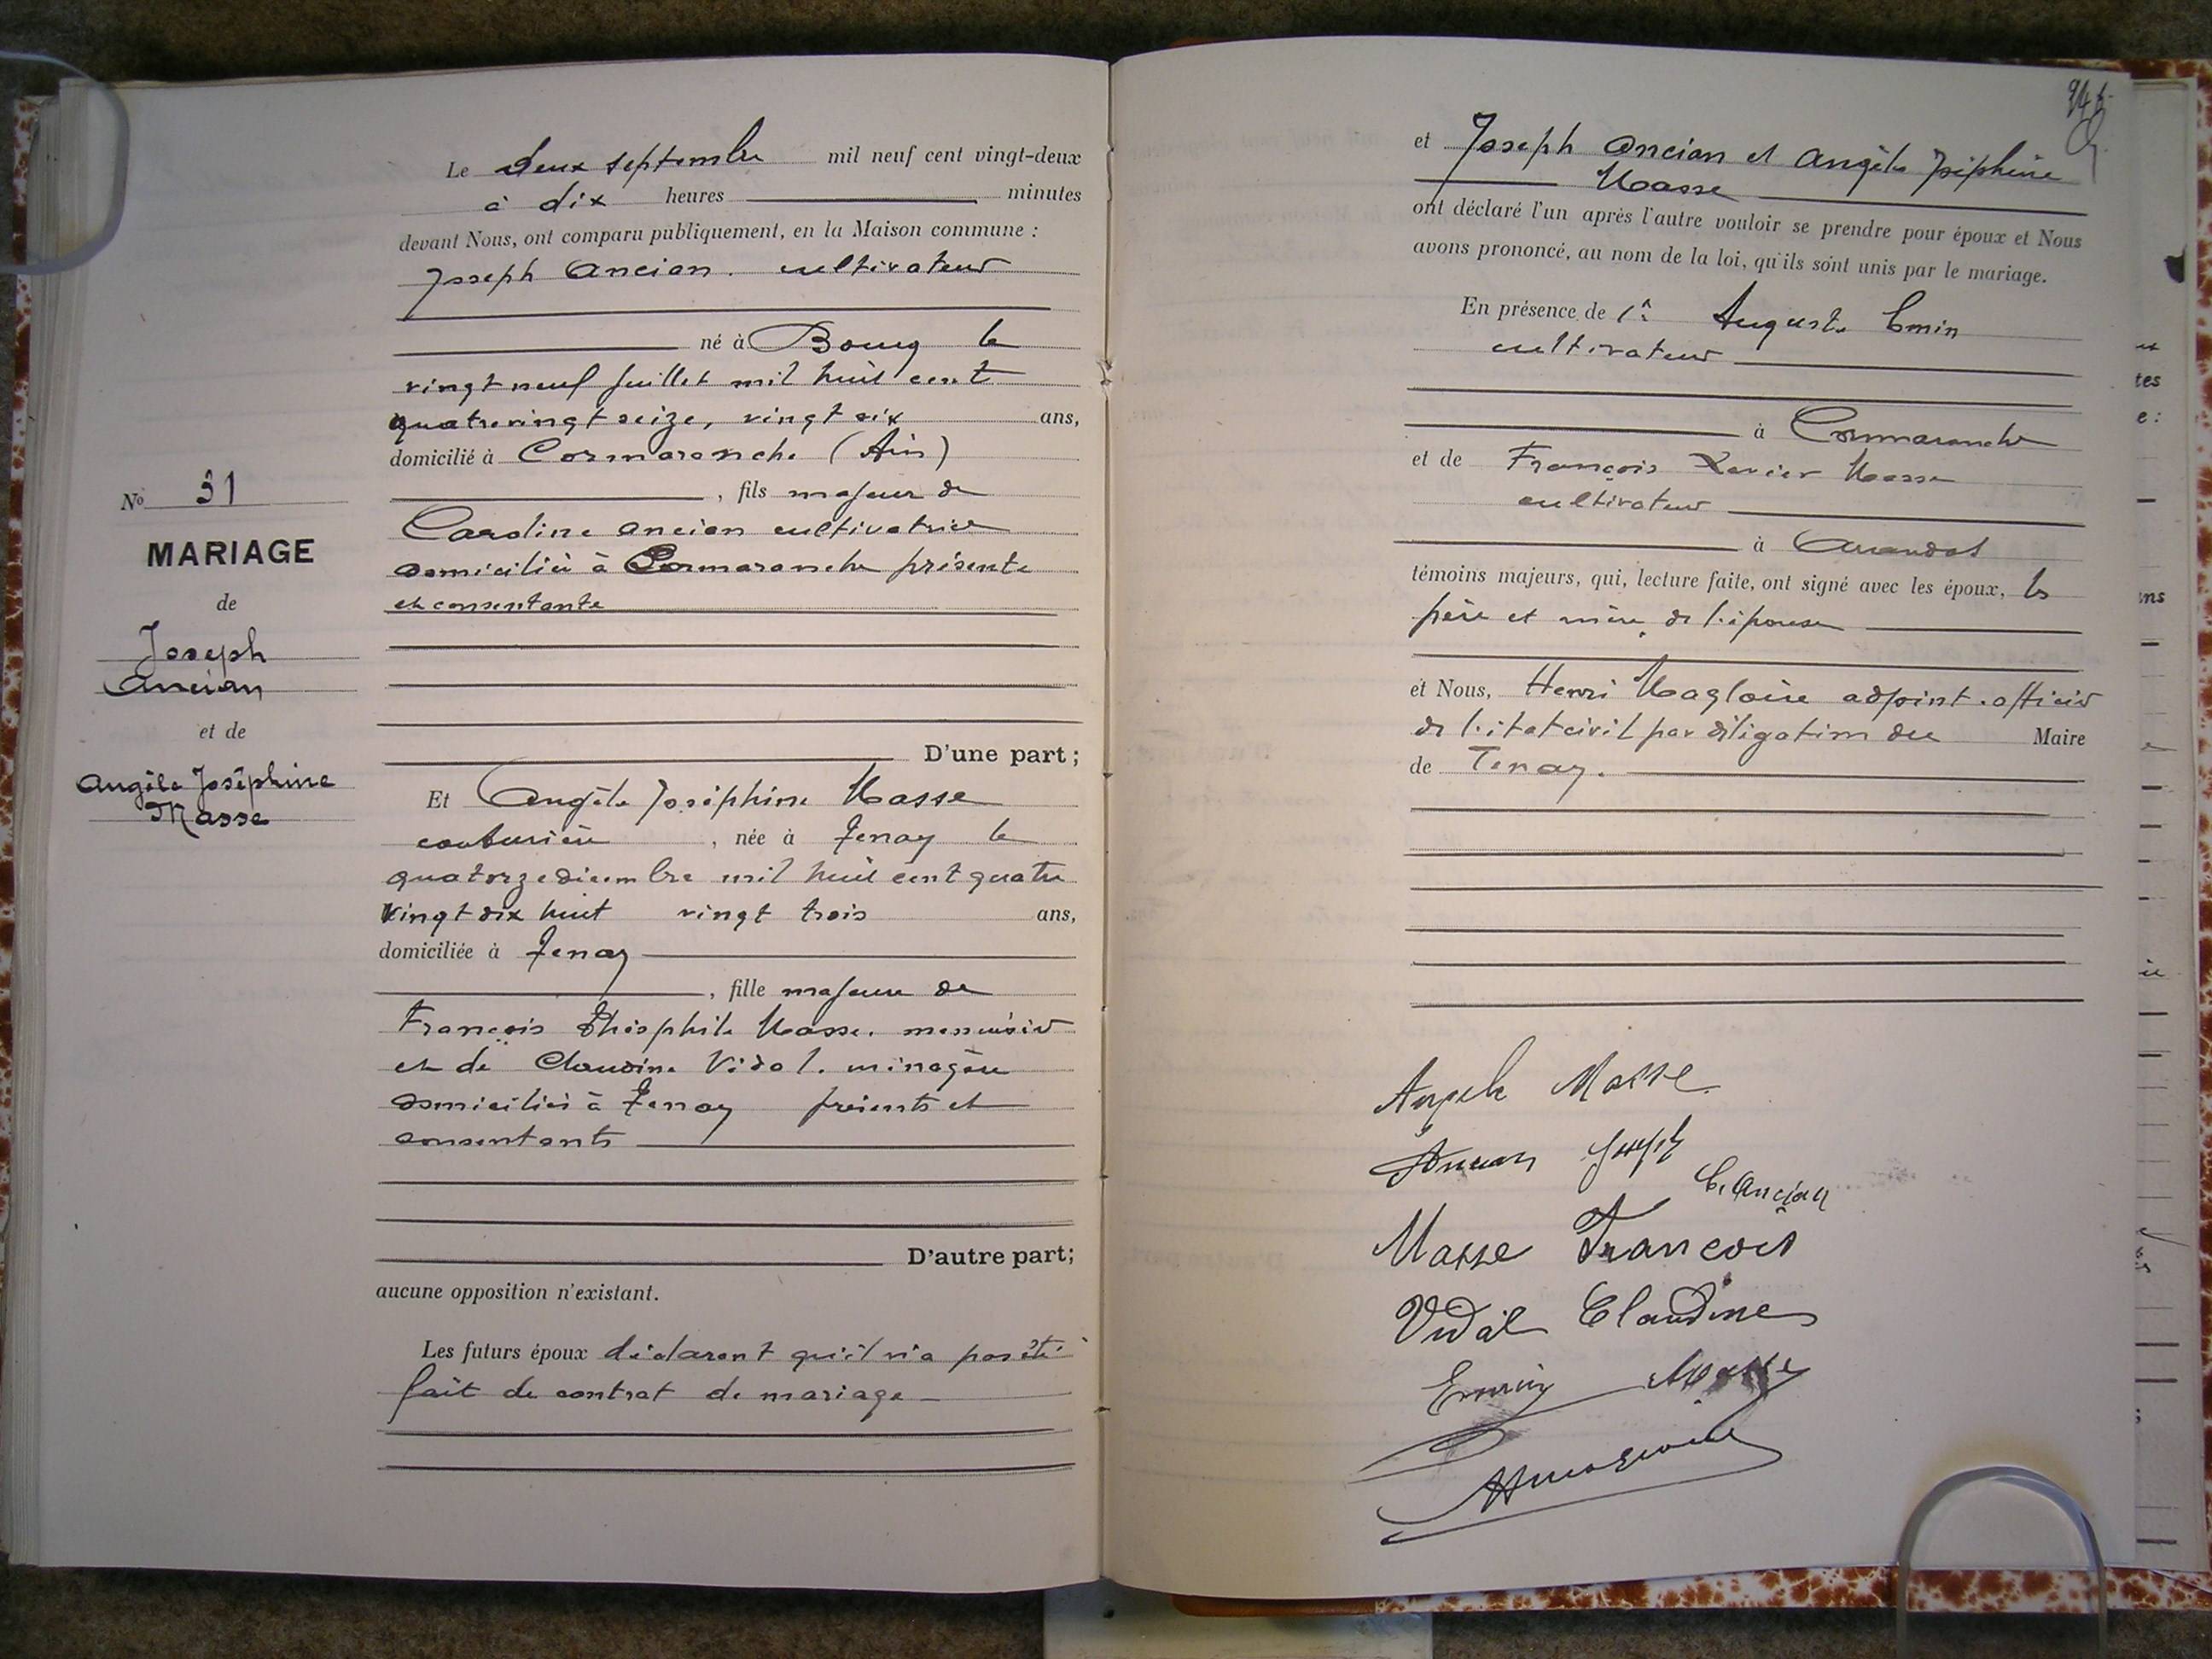 N° 31
MARIAGE
de
Joseph
Ancian
et de
Angèle Joséphine
Masse
Le deux septembre mil neuf cent vingt-deux
à dix heures minutes
devant Nous, ont comparu publiquement, en la Maison commune :
Joseph Ancian. cultivateur
né à Bourg le
vingt neuf juillet mil huit cent
quatre vingt seize, vingt six ans,
domicilié à Cormaranche (Ain)
, fils majeur de
Caroline Ancian cultivatrice
domiciliée à Cormaranche présente
et consentante
D'une part ;
Et Angèle Joséphine Masse
couturière , née à Tenay le
quatorze décembre mil huit cent quatre
vingt dix huit vingt trois ans,
domiciliée à Tenay
, fille majeure de
François Théophile Masse. menuisier
et de Claudine Vidal. ménagère
domiciliés à Tenay présents et
consentants
D'autre part;
aucune opposition n'existant.
Les futurs époux déclarent qu'il n'a pas été
fait de contrat de mariage
et Joseph Ancian et Angèle Joséphine
Masse
ont déclaré l'un après l'autre vouloir se prendre pour époux et Nous
avons prononcé, au nom de la loi, qu'ils sont unis par le mariage.
En présence de Auguste Emin
cultivateur
à Cormaranche
et de François Xavier Masse
cultivateur
à Arandas
témoins majeurs, qui, lecture faite, ont signé avec les époux, les
père et mère de l'épouse
et Nous, Henri Magloire adjoint. officier
de l'état civil par délégation du Maire
de Tenay.
Angèle Masse
Ancian Joseph
C. Ancian
Masse François
Vidal Claudine
Emin Masse